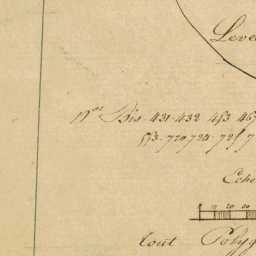 Leve
N.os Bis 431. 432. 453. 467
573. 720 724. 725 7
Eche
10 20 00
tout Polyg